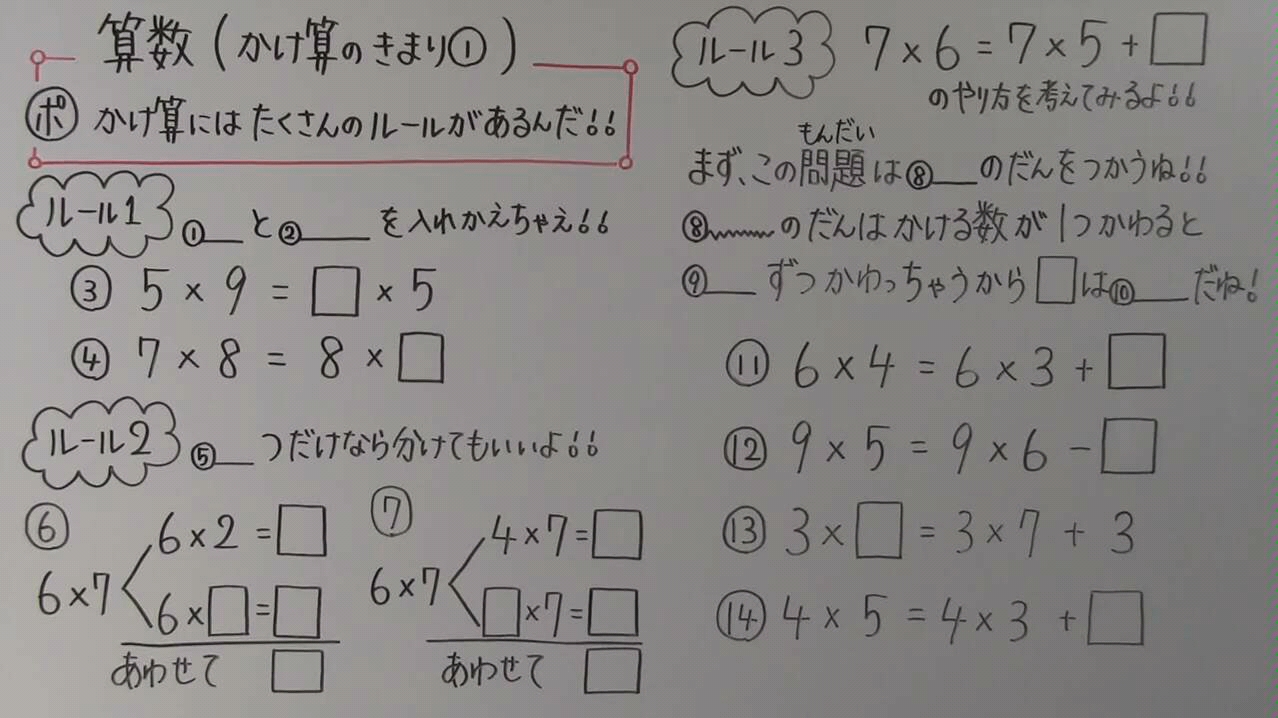 算数(かけ算のきまり①)
ポ かけ算にはたくさんのルールがあるんだ!!
ルール1 ①__と②____を入れかえちゃえ!!
③ 5×9=□×5
④ 7×8=8×□
ルール2 ⑤__つだけなら分けてもいいよ!!
⑥ 6×7
6×2=□
6×□=□
あわせて □
⑦ 6×7
4×7=□
□×7=□
あわせて □
ルール3 7×6=7×5+□
のやり方を考えてみるよ!!
もんだい
まず、この問題は⑧__のだんをつかうね!!
⑧____のだんはかける数が1つかわると
⑨__ずつかわっちゃうから□は⑩__だね!
⑪ 6×4=6×3+□
⑫ 9×5=9×6-□
⑬ 3×□=3×7+3
⑭ 4×5=4×3+□